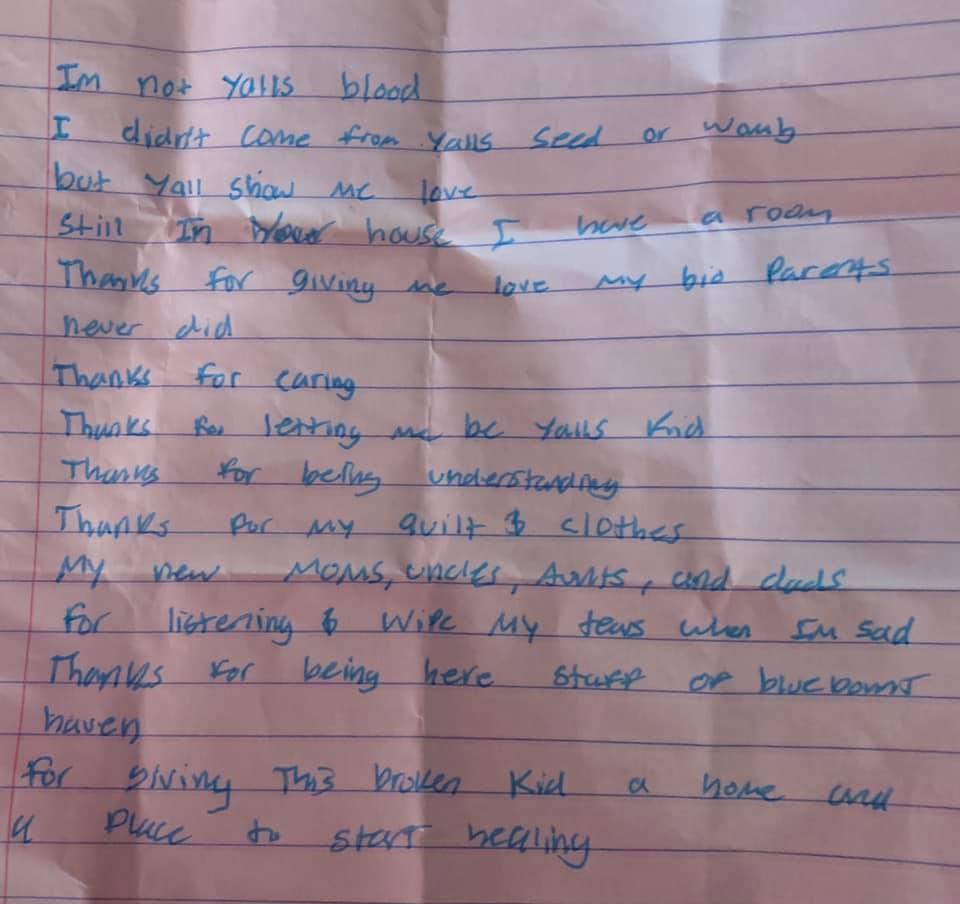 Im not yalls blood
I didn't come from yalls seed or womb
but yall show me love
still In your house I have a room
Thanks for giving me love my bio parents
never did
Thanks for caring
Thanks for letting me be yalls kid
Thanks for being understanding
Thanks for my quilt & clothes
My new Moms, uncles, Aunts, and dads
for listening & wipe my tears when Im sad
Thanks for being here staff of bluebonnt
haven
for giving This broken kid a home and
a place to start healing